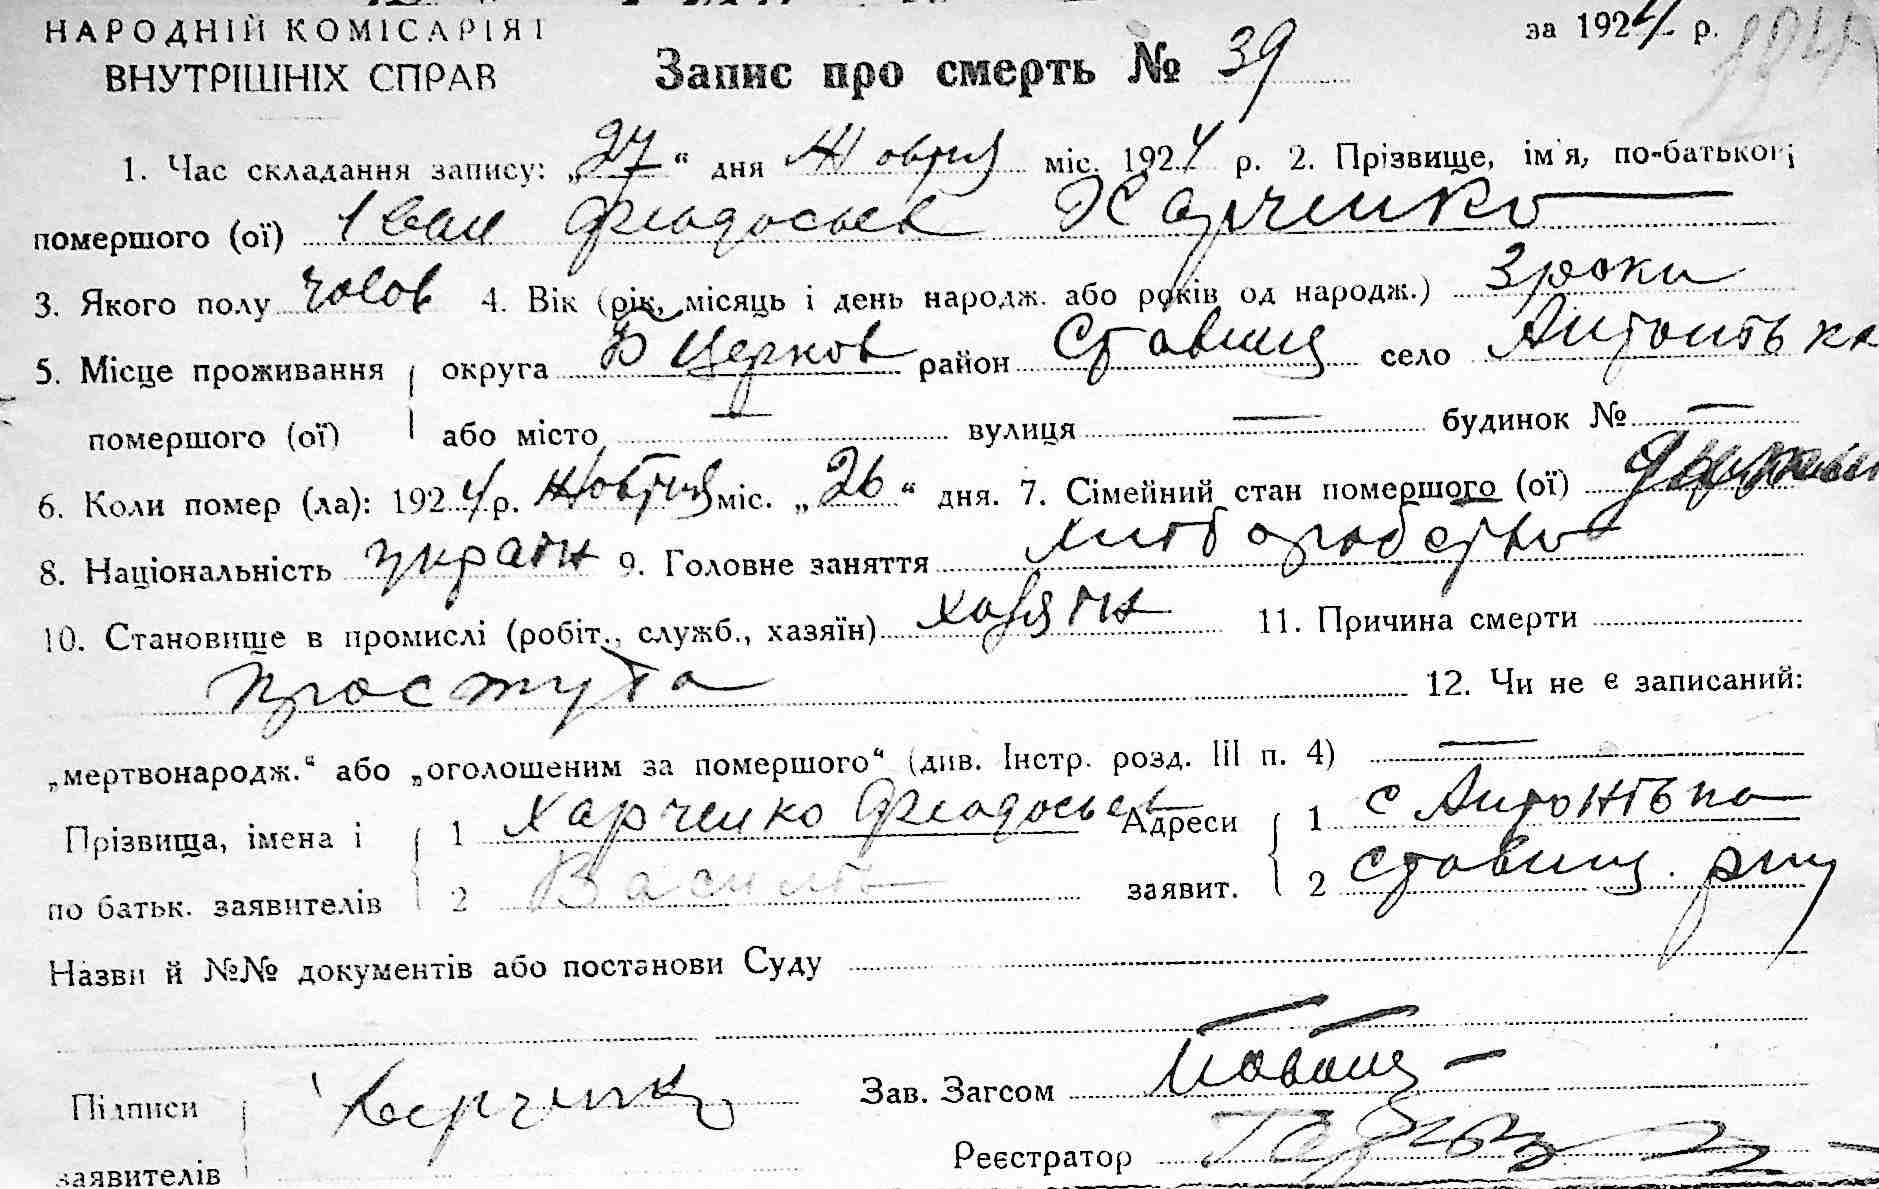 НАРОДНІЙ КОМІСАРІЯТ
ВНУТРІШНІХ СПРАВ
Запис про смерть № 39
за 1924 р.
1. Час складання запису: „27“ дня Жовтня міс. 1924 р. 2. Прізвище, ім'я, по-батькові
помершого (ої) Іван Феодосьев Харченко
3. Якого полу чолов 4. Вік (рік, місяць і день народж. або років од народж.) 3 роки
5. Місце проживання округа Б Церков район Ставищ село Антонівка
помершого (ої) або місто — вулиця — будинок № —
6. Коли помер (ла): 1924 р. Жовтня міс. „26“ дня. 7. Сімейний стан помершого (ої)
8. Національність україн 9. Головне заняття хліборобство
10. Становище в промислі (робіт., служб., хазяїн) хазяїн 11. Причина смерти
простуда
12. Чи не є записаний:
„мертвонародж.“ або „оголошеним за помершого“ (див. Інстр. розд. III п. 4) —
Прізвища, імена і 1 Харченко Феодосьев Адреси 1 с Антонівка
по батьк. заявителів 2 Василь заявит. 2 Ставищ. рну
Назви й №№ документів або постанови Суду
Підписи Харченко Зав. Загсом
заявителів Реєстратор